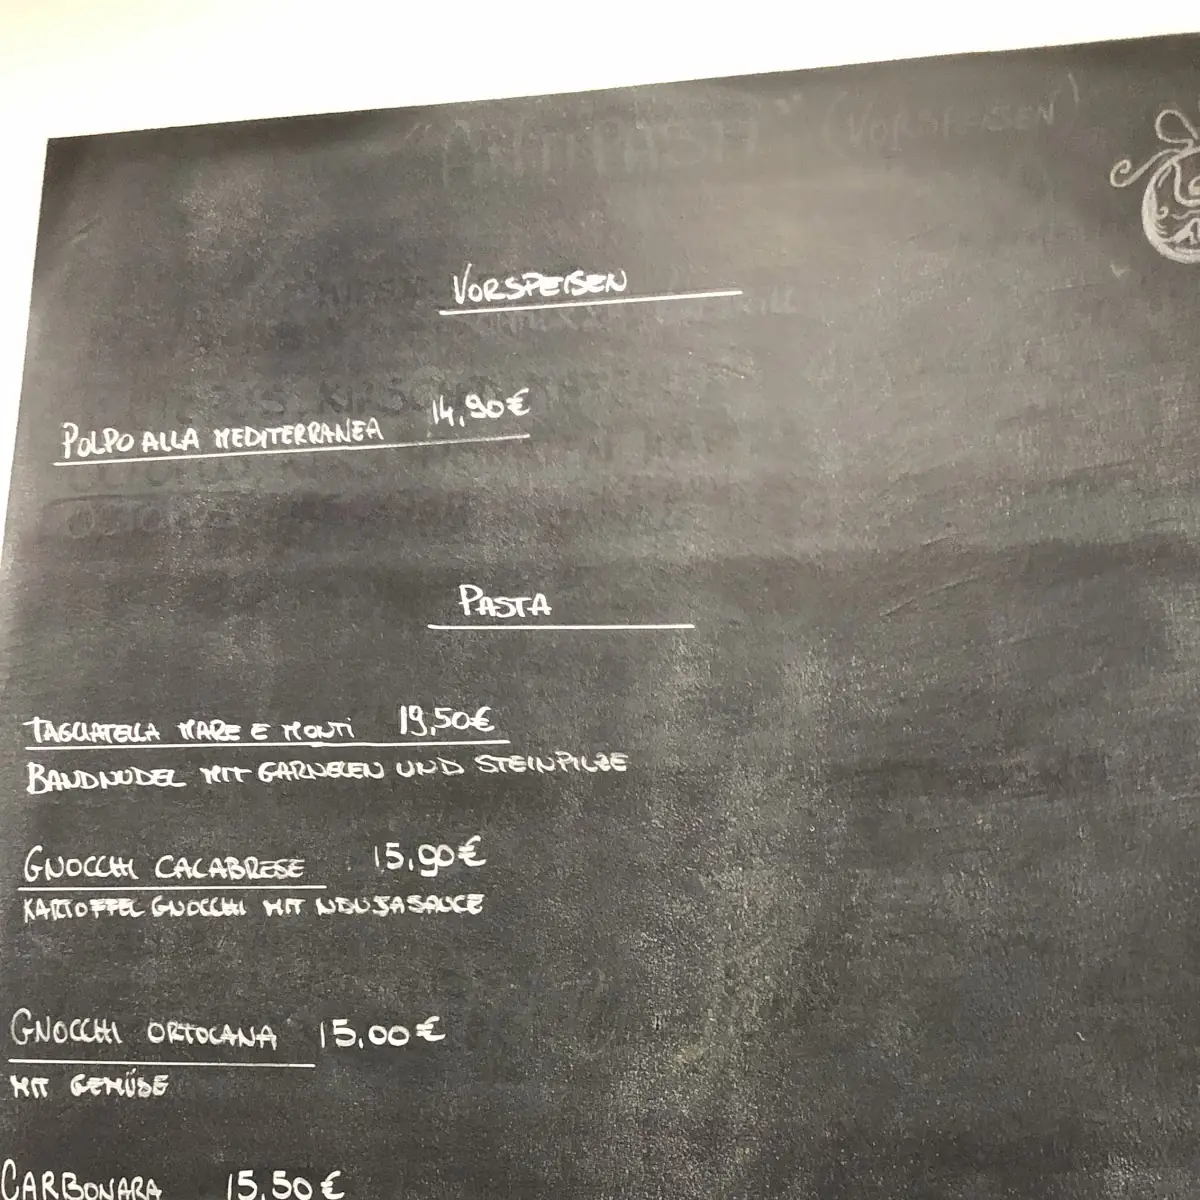 "ANTIPASTI" (VORSPEISEN)
VORSPEISEN
POLPO ALLA MEDITERRANEA 14,90€
PASTA
TAGLIATELLA MARE E MONTI 19,50€
BANDNUDEL MIT GARNELEN UND STEINPILZE
GNOCCHI CALABRESE 15,90€
KARTOFFEL GNOCCHI MIT NDUJASAUCE
GNOCCHI ORTOLANA 15,00€
MIT GEMÜSE
CARBONARA 15,50€